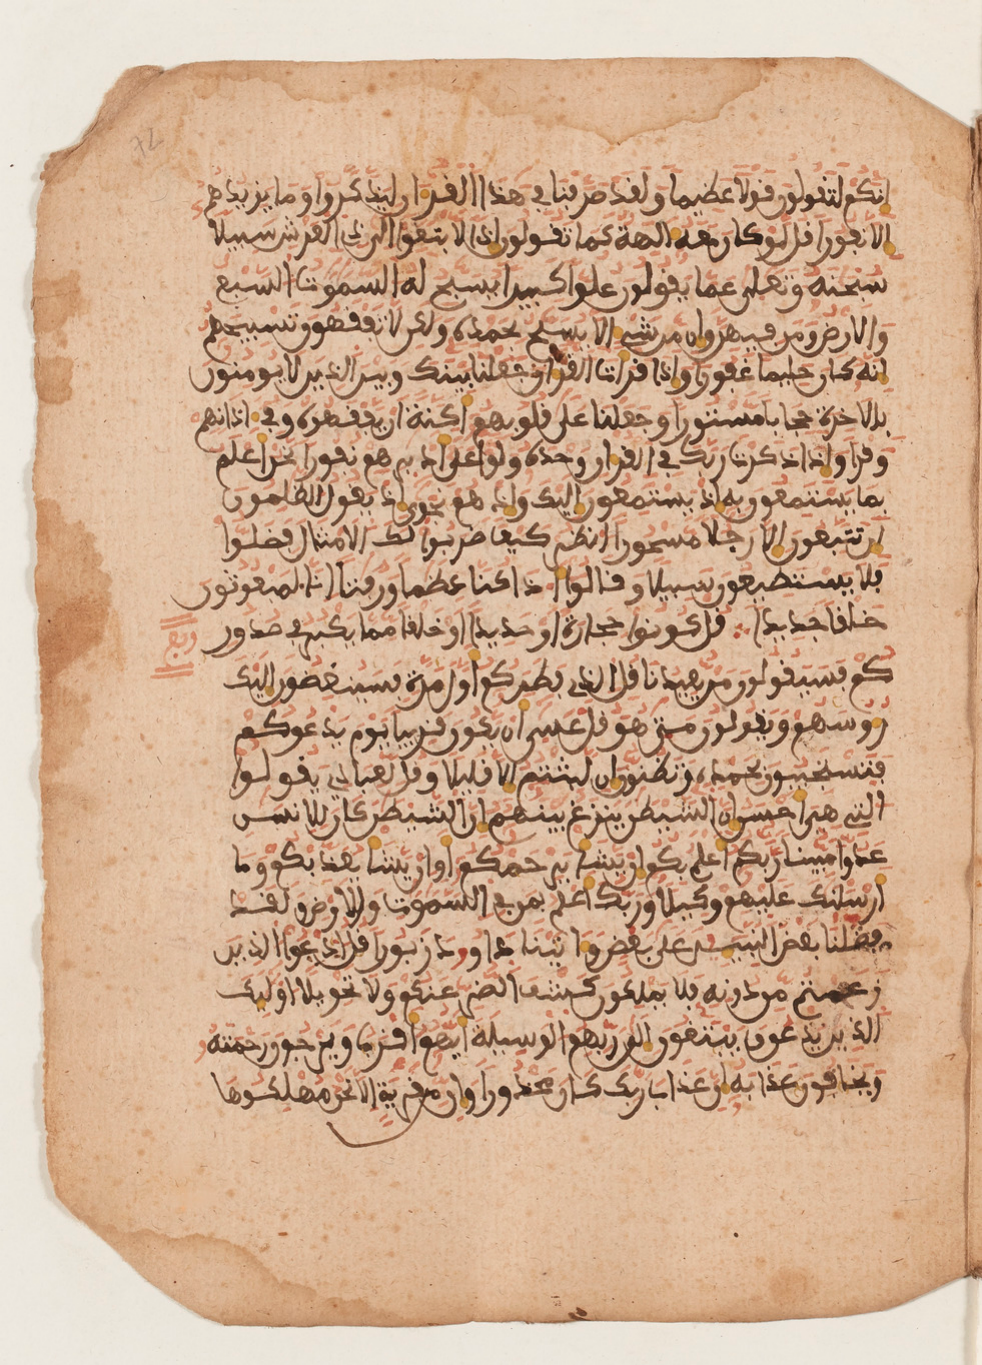 إنكم لتقولون قولا عظيما ولقد صرفنا في هذا القرءان ليذكروا وما يزيدهم
إلا نفورا قل لو كان معه ءالهة كما تقولون إذا لابتغوا إلى ذي العرش سبيلا
سبحنه وتعلى عما يقولون علوا كبيرا يسبح له السموت السبع
والارض ومن فيهن وان من شيء الا يسبح بحمده ولكن لا تفقهون تسبيحهم
انه كان حليما غفورا واذا قرات القرءان جعلنا بينك وبين الذين لا يومنون
بالاخرة حجابا مستورا وجعلنا على قلوبهم أكنة ان يفقهوه وفي ءاذانهم
وقرا واذا ذكرت ربك في القرءان وحده ولوا على أدبرهم نفورا نحن اعلم
بما يستمعون به إذ يستمعون اليك واذ هم نجوى إذ يقول الظلمون
ان تتبعون الا رجلا مسحورا انظر كيف ضربوا لك الامثال فضلوا
فلا يستطيعون سبيلا وقالوا أ.ذا كنا عظما ورفتا انا لمبعوثون
خلقا جديدا قل كونوا حجارة او حديدا او خلقا مما يكبر في صدور
ربع
كم فسيقولون من يعيدنا قل الذي فطركم أول مرة فسينغضون اليك
روسهم ويقولون متى هو قل عسى ان يكون قريبا يوم يدعوكم
فتستجيبون بحمده وتظنون ان لبثتم الا قليلا وقل لعبادي يقولوا
التي هي احسن ان الشيطن ينزغ بينهم ان الشيطن كان للانسن
عدوا مبينا ربكم أعلم بكم ان يشا يرحمكم أو ان يشا يعذبكم وما
ارسلنك عليهم وكيلا وربك اعلم بمن في السموت والارض ولقد
فضلنا بعض النبيين على بعض وءاتينا داوود زبورا قل ادعوا الذين
زعمتم من دونه فلا يملكون كشف الضر عنكم ولا تحويلا اوليك
الذين يدعون يبتغون الى ربهم الوسيلة أيهم أقرب ويرجون رحمته
ويخافون عذابه إن عذاب ربك كان محذورا وان من قرية الا نحن مهلكوها